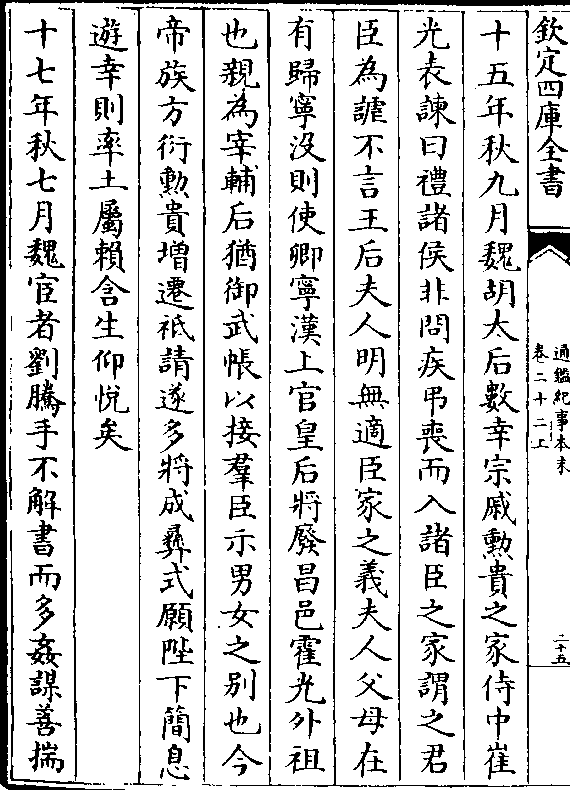 欽定四庫全書
通鑑紀事本末
卷二十二上
二十五
十五年秋九月魏胡太后數幸宗戚勲貴之家侍中崔
光表諫曰禮諸侯非問疾弔喪而入諸臣之家謂之君
臣為謔不言王后夫人明無適臣家之義夫人父母在
有歸寧没則使卿寧漢上官皇后將廢昌邑霍光外祖
也親為宰輔后猶御武帳以接羣臣示男女之别也今
帝族方衍勲貴増遷祗請遂多將成彞式願陛下簡息
遊幸則率土屬賴含生仰悅矣
十七年秋七月魏宦者劉騰手不解書而多姦謀善揣